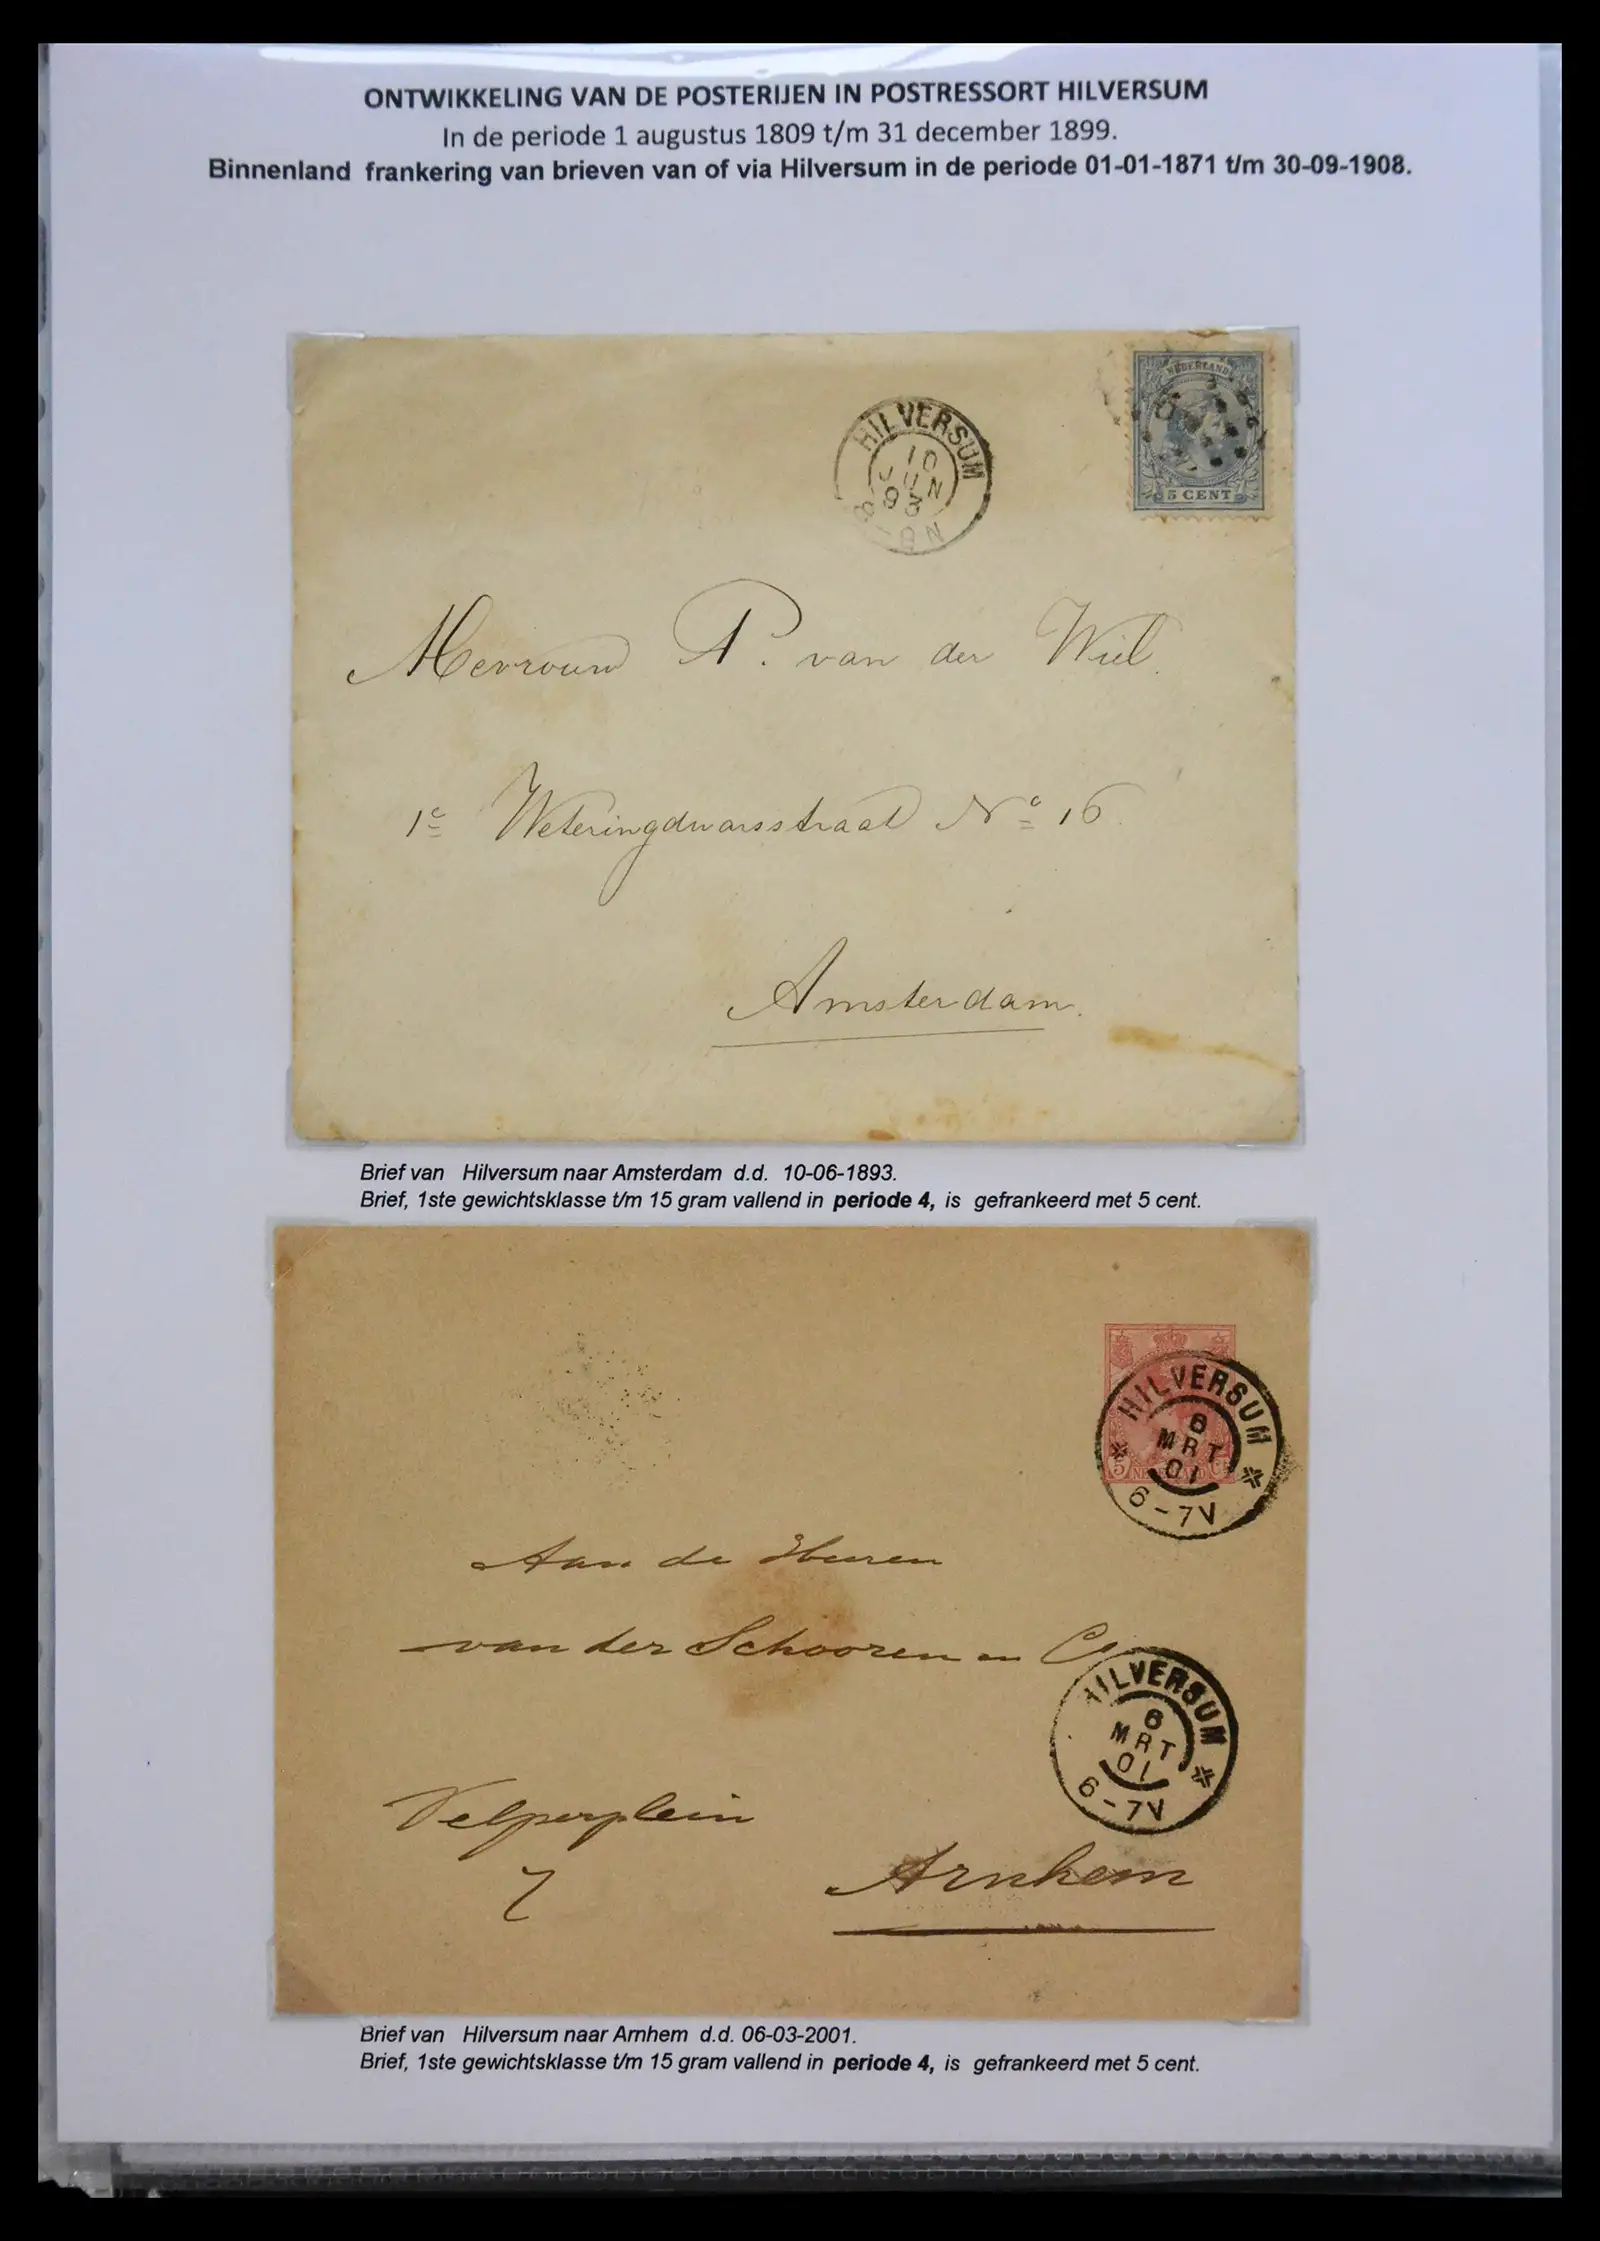 ONTWIKKELING VAN DE POSTERIJEN IN POSTRESSORT HILVERSUM
In de periode 1 augustus 1809 t/m 31 december 1899.
Binnenland frankering van brieven van of via Hilversum in de periode 01-01-1871 t/m 30-09-1908.
NEDERLAND
5 CENT
HILVERSUM
10
JUN
93
8-8N
Mevrouw P. van der Wiel.
1e Weteringdwarsstraat No 16.
Amsterdam.
Brief van Hilversum naar Amsterdam d.d. 10-06-1893.
Brief, 1ste gewichtsklasse t/m 15 gram vallend in periode 4, is gefrankeerd met 5 cent.
5 NEDERLAND
HILVERSUM
6
MRT
01
6-7V
Aan de Heeren
van der Schooren en Co
HILVERSUM
6
MRT
01
6-7V
Velperplein
7
Arnhem
Brief van Hilversum naar Arnhem d.d. 06-03-2001.
Brief, 1ste gewichtsklasse t/m 15 gram vallend in periode 4, is gefrankeerd met 5 cent.